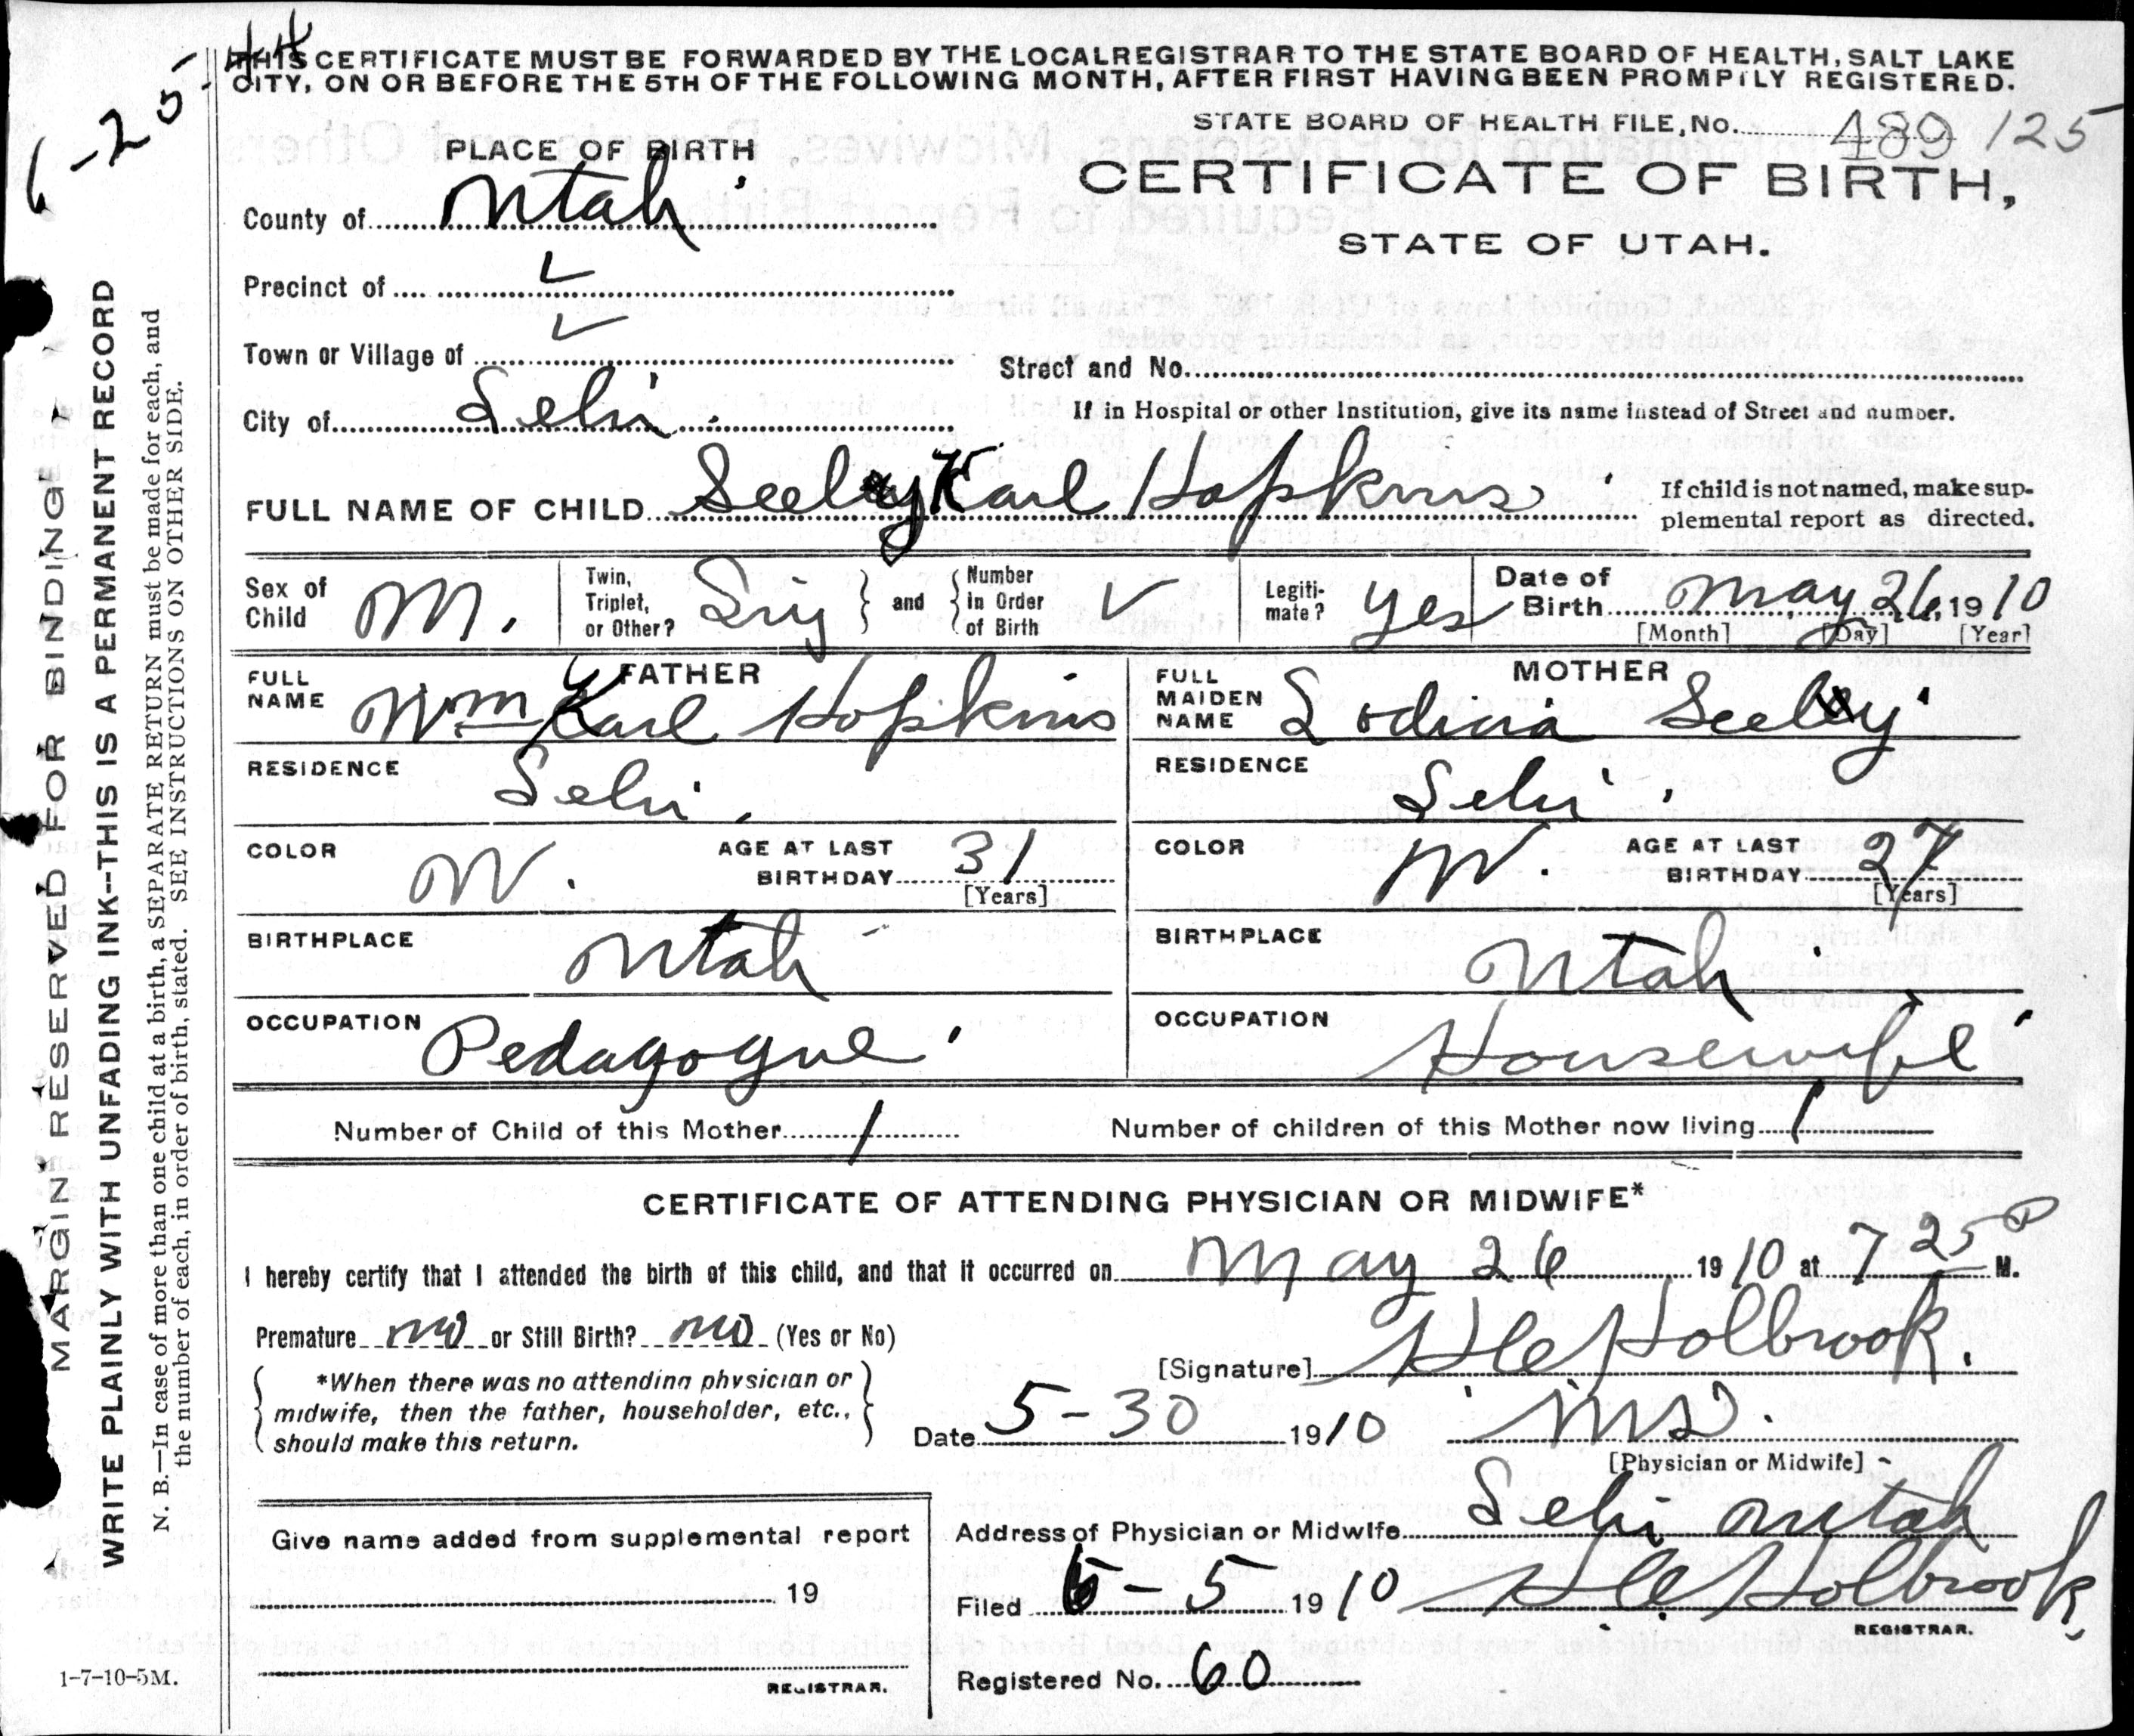 1-25-44
THIS CERTIFICATE MUST BE FORWARDED BY THE LOCAL REGISTRAR TO THE STATE BOARD OF HEALTH, SALT LAKE
CITY, ON OR BEFORE THE 5TH OF THE FOLLOWING MONTH, AFTER FIRST HAVING BEEN PROMPTLY REGISTERED.
STATE BOARD OF HEALTH FILE, NO. 489 125
PLACE OF BIRTH
CERTIFICATE OF BIRTH,
STATE OF UTAH.
County of Utah
Precinct of ✓
Town or Village of ✓
Street and No.
City of Lehi
If in Hospital or other Institution, give its name instead of Street and number.
FULL NAME OF CHILD Seely Karl Hopkins
If child is not named, make sup-
plemental report as directed.
Sex of Child M.
Twin, Triplet, or Other? Sing
and
Number in Order of Birth ✓
Legiti-mate? Yes
Date of Birth May 26, 1910
[Month] [Day] [Year]
FATHER
FULL NAME Wm Karl Hopkins
RESIDENCE Lehi.
COLOR W. AGE AT LAST BIRTHDAY 31
[Years]
BIRTHPLACE Utah
OCCUPATION Pedagogue
MOTHER
FULL MAIDEN NAME Lodicia Seely
RESIDENCE Lehi.
COLOR W. AGE AT LAST BIRTHDAY 27
[Years]
BIRTHPLACE Utah
OCCUPATION Housewife
Number of Child of this Mother 1
Number of children of this Mother now living 1
CERTIFICATE OF ATTENDING PHYSICIAN OR MIDWIFE*
I hereby certify that I attended the birth of this child, and that it occurred on May 26 1910 at 7 25 P M.
Premature no or Still Birth? no (Yes or No)
[Signature] Holbrook.
*When there was no attending physician or
midwife, then the father, householder, etc.,
should make this return.
Date 5-30 1910 MD.
[Physician or Midwife]
Address of Physician or Midwife Lehi Utah
Give name added from supplemental report
19
REGISTRAR.
Filed 6-5 1910 Holbrook.
REGISTRAR.
Registered No. 60
1-7-10-5M.
MARGIN RESERVED FOR BINDING
WRITE PLAINLY WITH UNFADING INK--THIS IS A PERMANENT RECORD
N. B.—In case of more than one child at a birth, a SEPARATE RETURN must be made for each, and
the number of each, in order of birth, stated. SEE INSTRUCTIONS ON OTHER SIDE.